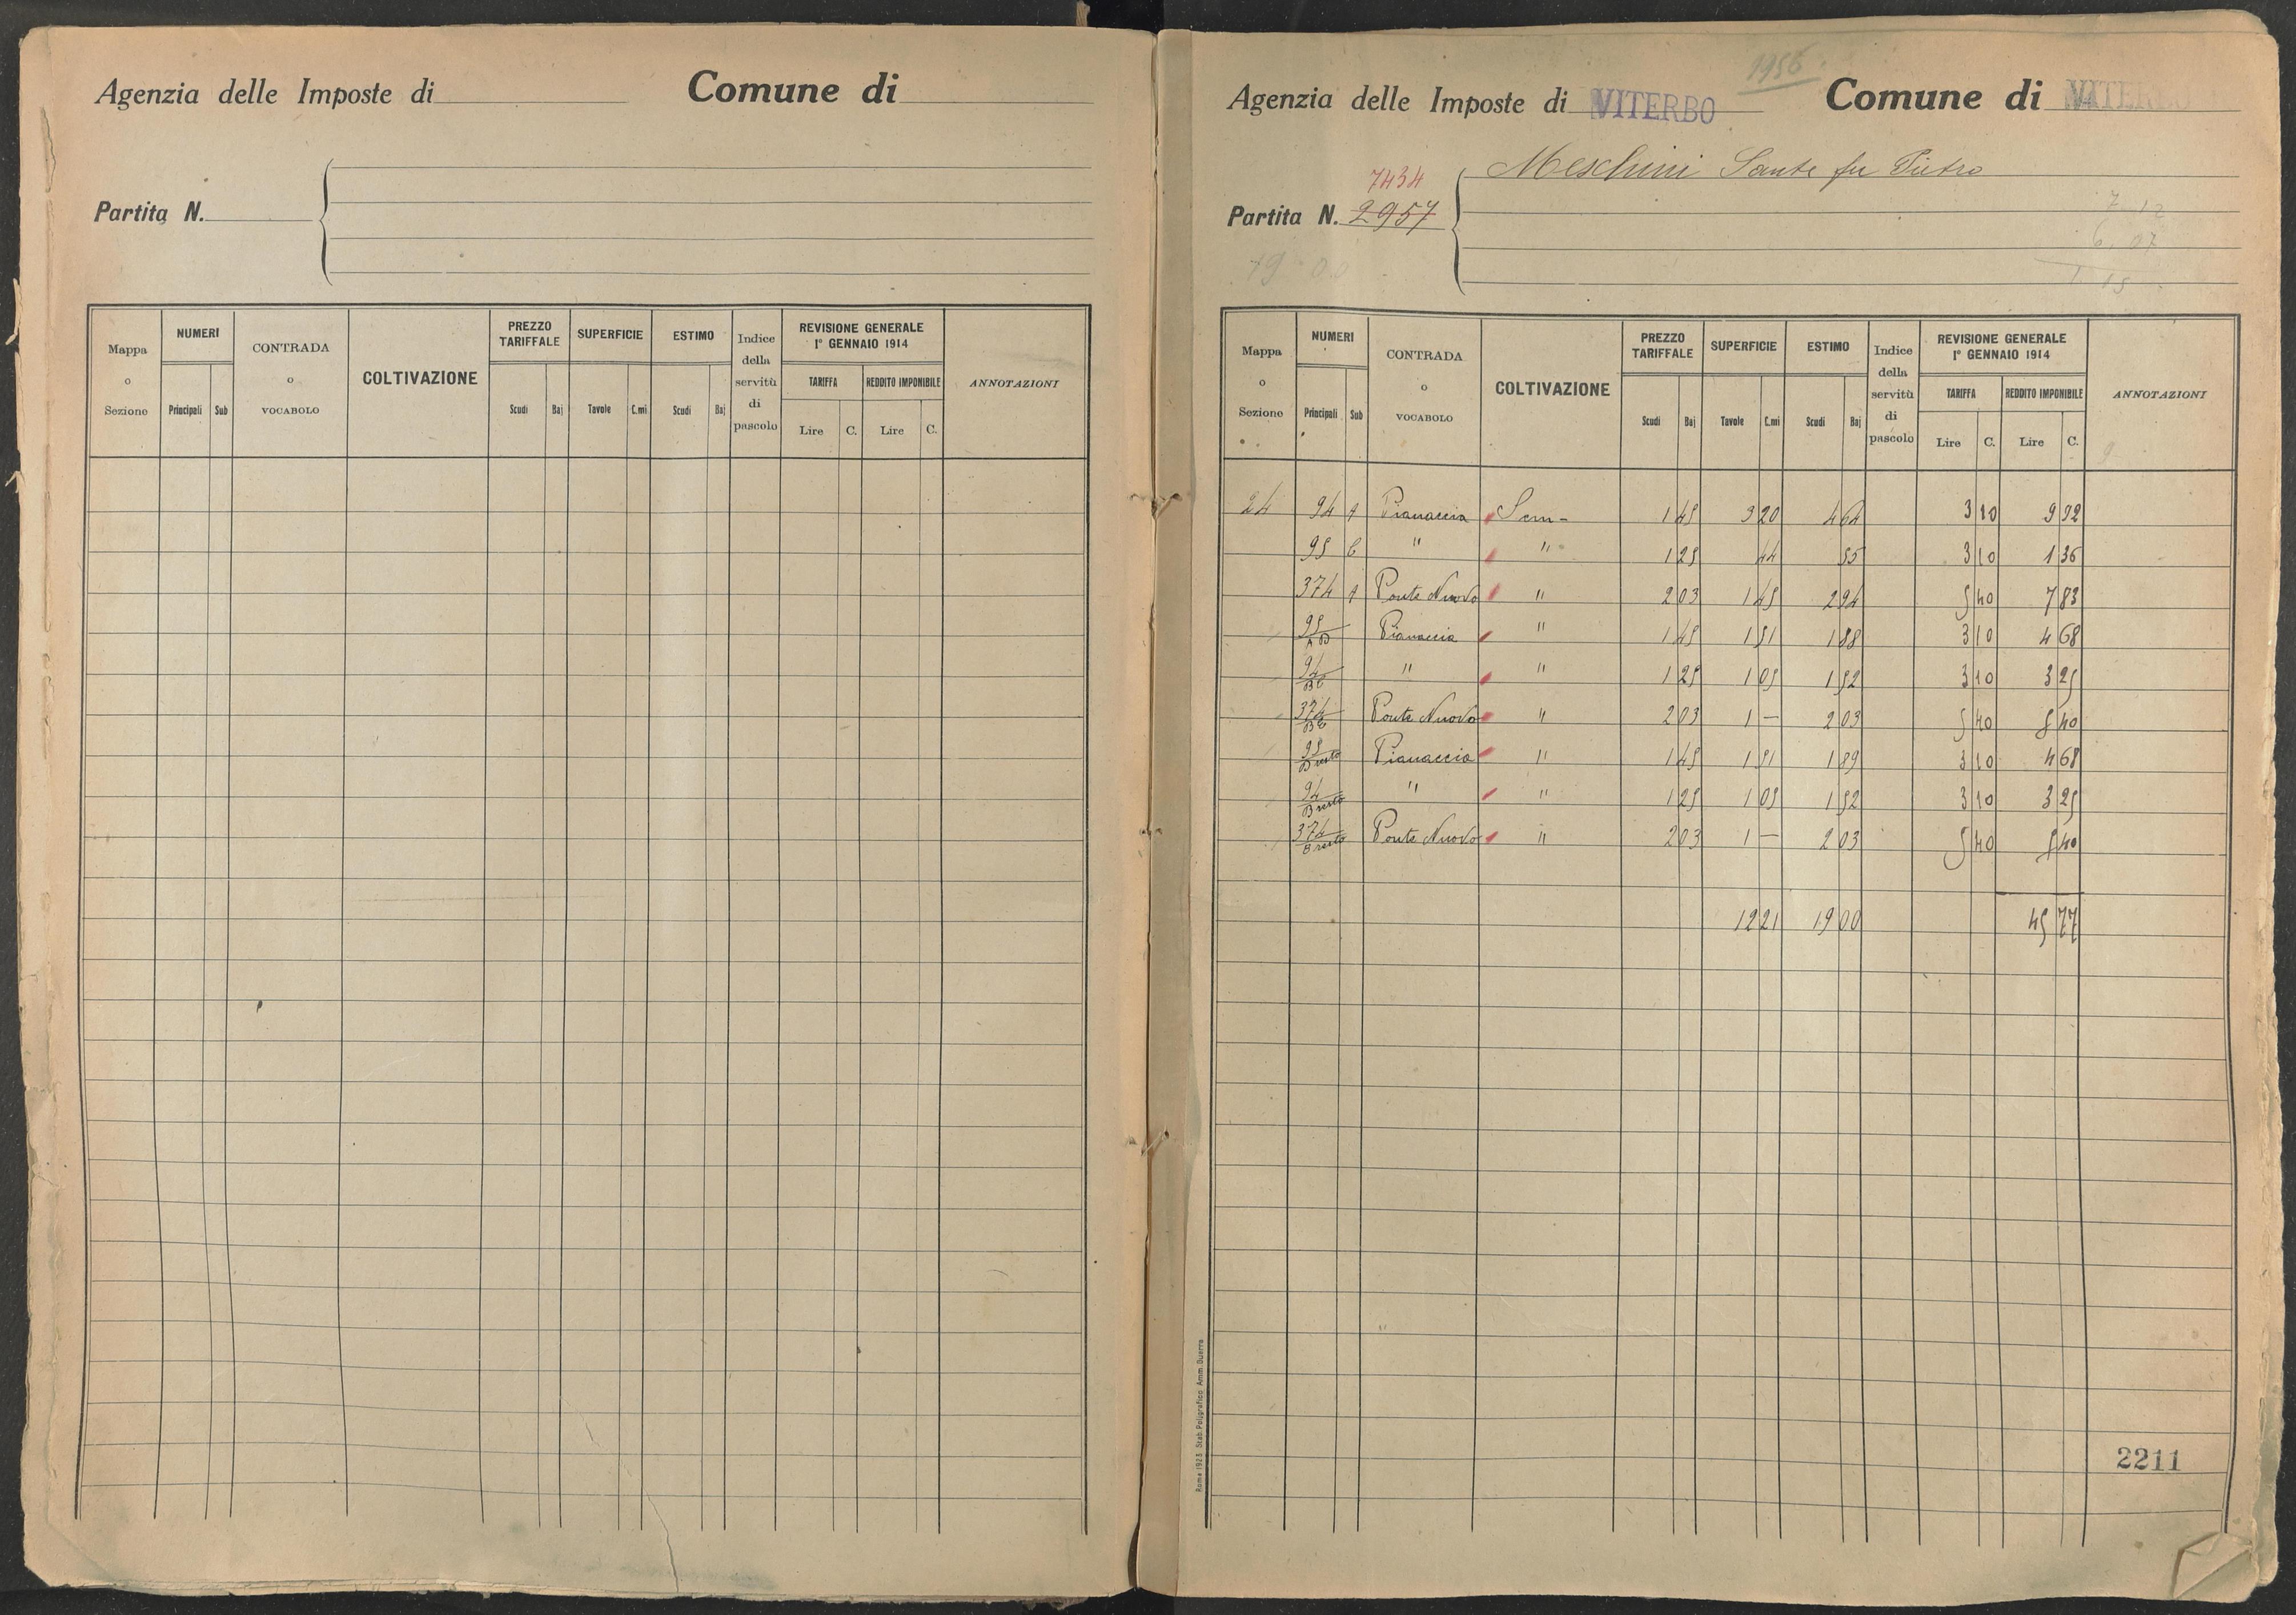 Agenzia delle Imposte di Comune di
Partita N.
Mappa o Sezione NUMERI CONTRADA o VOCABOLO COLTIVAZIONE PREZZO TARIFFALE SUPERFICIE ESTIMO Indice della servitù di pascolo REVISIONE GENERALE 1° GENNAIO 1914 ANNOTAZIONI
TARIFFA REDDITO IMPONIBILE
Principali Sub Scudi Baj Tavole C.mi Scudi Baj Lire C. Lire C.
1956
Agenzia delle Imposte di VITERBO Comune di VITERBO
Meschini Sante fu Pietro
7434
Partita N. 2957
7 12
6 07
1 15
19 00
Mappa o Sezione NUMERI CONTRADA o VOCABOLO COLTIVAZIONE PREZZO TARIFFALE SUPERFICIE ESTIMO Indice della servitù di pascolo REVISIONE GENERALE 1° GENNAIO 1914 ANNOTAZIONI
TARIFFA REDDITO IMPONIBILE
Principali Sub Scudi Baj Tavole C.mi Scudi Baj Lire C. Lire C.
24 94 1 Pianaccia Sem- 1 45 3 20 4 64 3 10 9 92
95 " " 1 25 44 55 3 10 1 36
374 1 Ponte Nuovo " 2 03 1 45 2 94 5 40 7 83
95 Pianaccia " 1 45 1 51 1 88 3 10 4 68
94 " " 1 25 1 05 1 52 3 10 3 25
374 Ponte Nuovo " 2 03 1 — 2 03 5 40 5 40
95 B resto Pianaccia " 1 45 1 51 1 89 3 10 4 68
94 B resto " " 1 25 1 05 1 52 3 10 3 25
374 B resto Ponte Nuovo " 2 03 1 — 2 03 5 40 5 40
12 21 19 00 45 77
Roma 1923 Stab. Poligrafico Amm. Guerra
2211